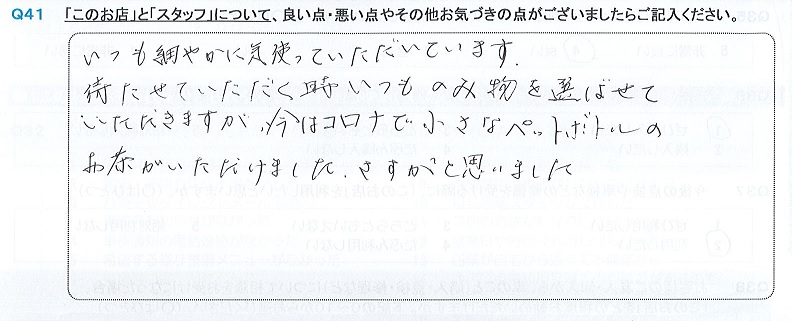 Q41 「このお店」と「スタッフ」について、良い点・悪い点やその他お気づきの点がございましたらご記入ください。
いつも細やかに気使っていただいています.
待たせていただく時いつものみ物を選ばせて
いただきますが、今はコロナで小さなペットボトルの
お茶がいただけました. さすがと思いました